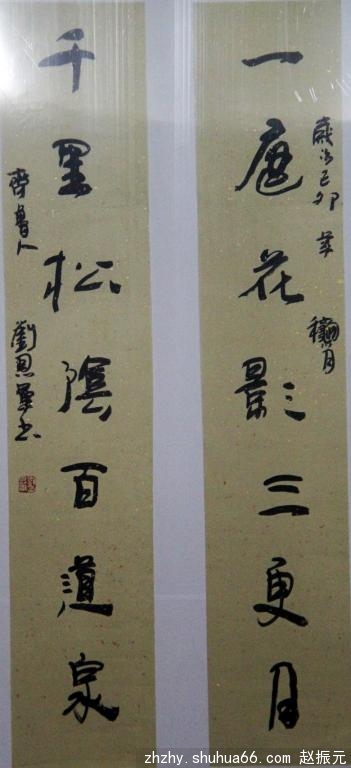 一庭花影三更月
歲次己卯年 穐月
千里松陰百道泉
齊魯人 劉
zhzhy.shuhua66.com 赵振元